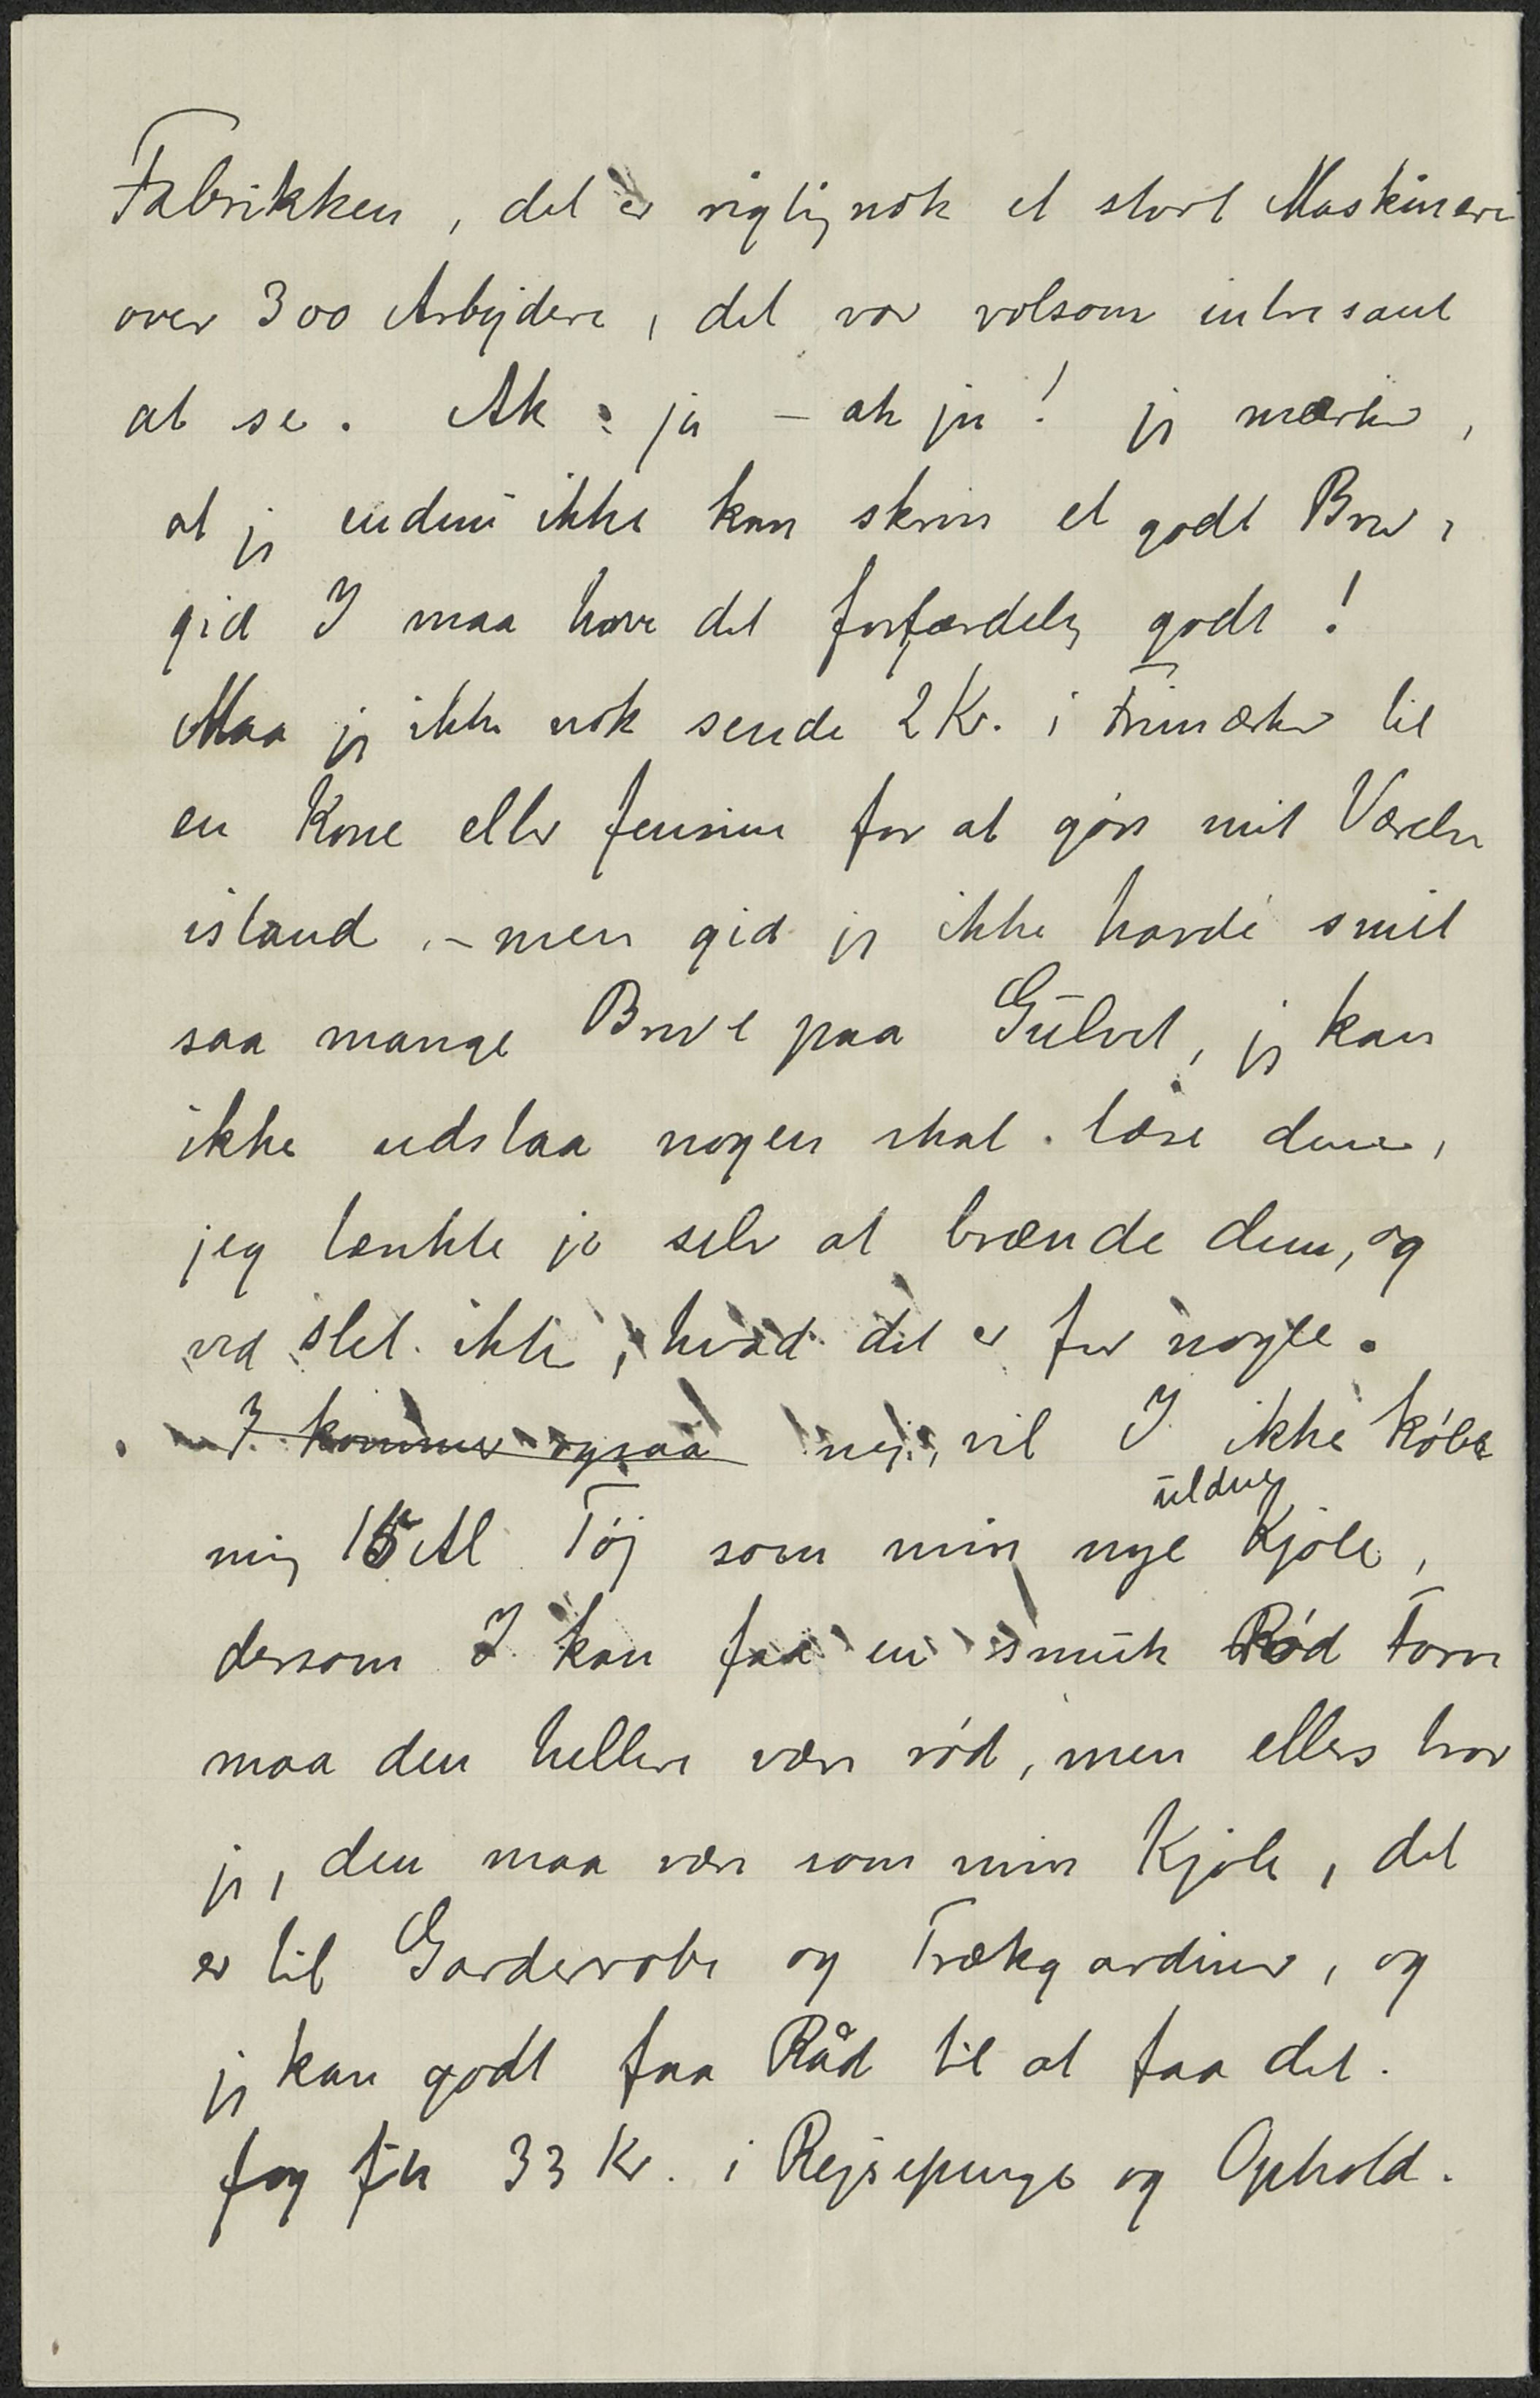 Fabrikken, det er rigtignok et stort Maskineri
over 300 Arbejdere, det var volsom intresant
at se. Ak ja – ak ja! jeg mærker,
at jeg endnu ikke kan skrive et godt Brev,
gid I maa have det forfærdelig godt!
Maa jeg ikke nok sende 2 Kr. i Frimærker til
en Kone eller Jensine for at gøre mit Værelse
istand, – men gid jeg ikke havde smit
saa mange Breve paa Gulvet, jeg kan
ikke udstaa nogen skal læse dem,
jeg tænkte jo selv at brænde dem, og
ved slet ikke, hvad det er for nogle.
I kommer ogsaa nej, vil I ikke købe
mig 15 Al Tøj som min nye ulden Kjole,
dersom I kan faa en smuk Rød Farve
maa den hellere være rød, men ellers tror
jeg, den maa være som min Kjole, det
er til Garderobe og Trækgardiner, og
jeg kan godt faa Råd til at faa det.
Jeg fik 33 Kr. i Rejsepenge og Ophold.